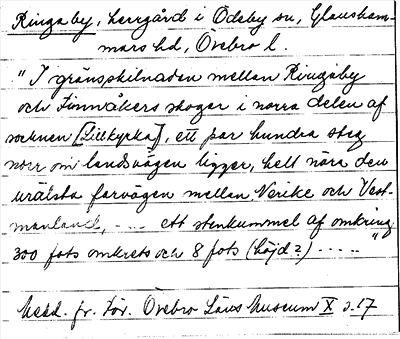 Ringaby, herrgård i Ödeby sn, Glansham-
mars hd, Örebro l.
"I gränsskilnaden mellan Ringaby
och Finnåkers skogar i norra delen af
socknen [Lillkyrka], ett par hundra steg
norr om landsvägen ligger, helt nära den
urälsta farvägen mellan Nerike och Vest-
manland, .... ett stenkummel af omkring
300 fots omkrets och 8 fots (höjd?) ....."
Medd. fr. För. Örebro Läns Museum X s. 17